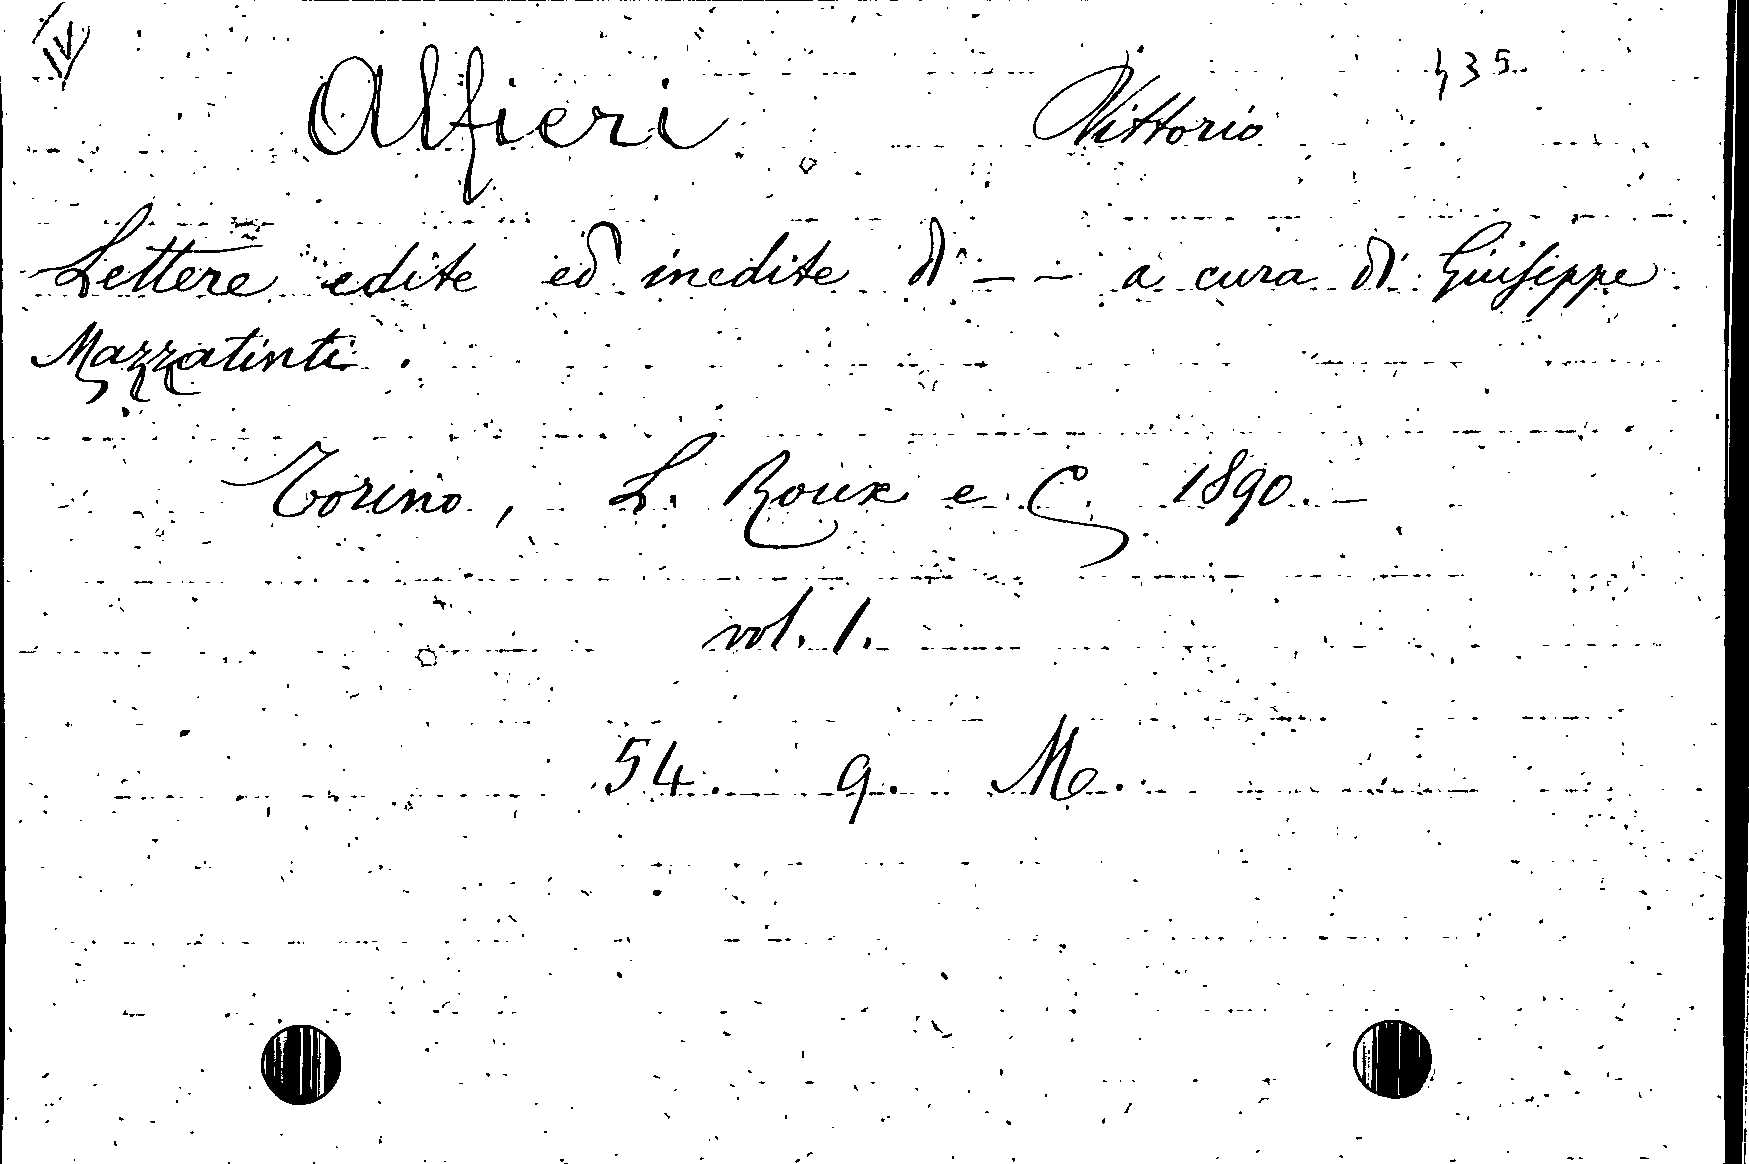 IV
Alfieri Vittorio 435.
Lettere edite ed inedite di - - a cura di Giuseppe
Mazzatinti.
Torino, L. Roux e C. 1890. -
vol. 1.
54. 9. M.